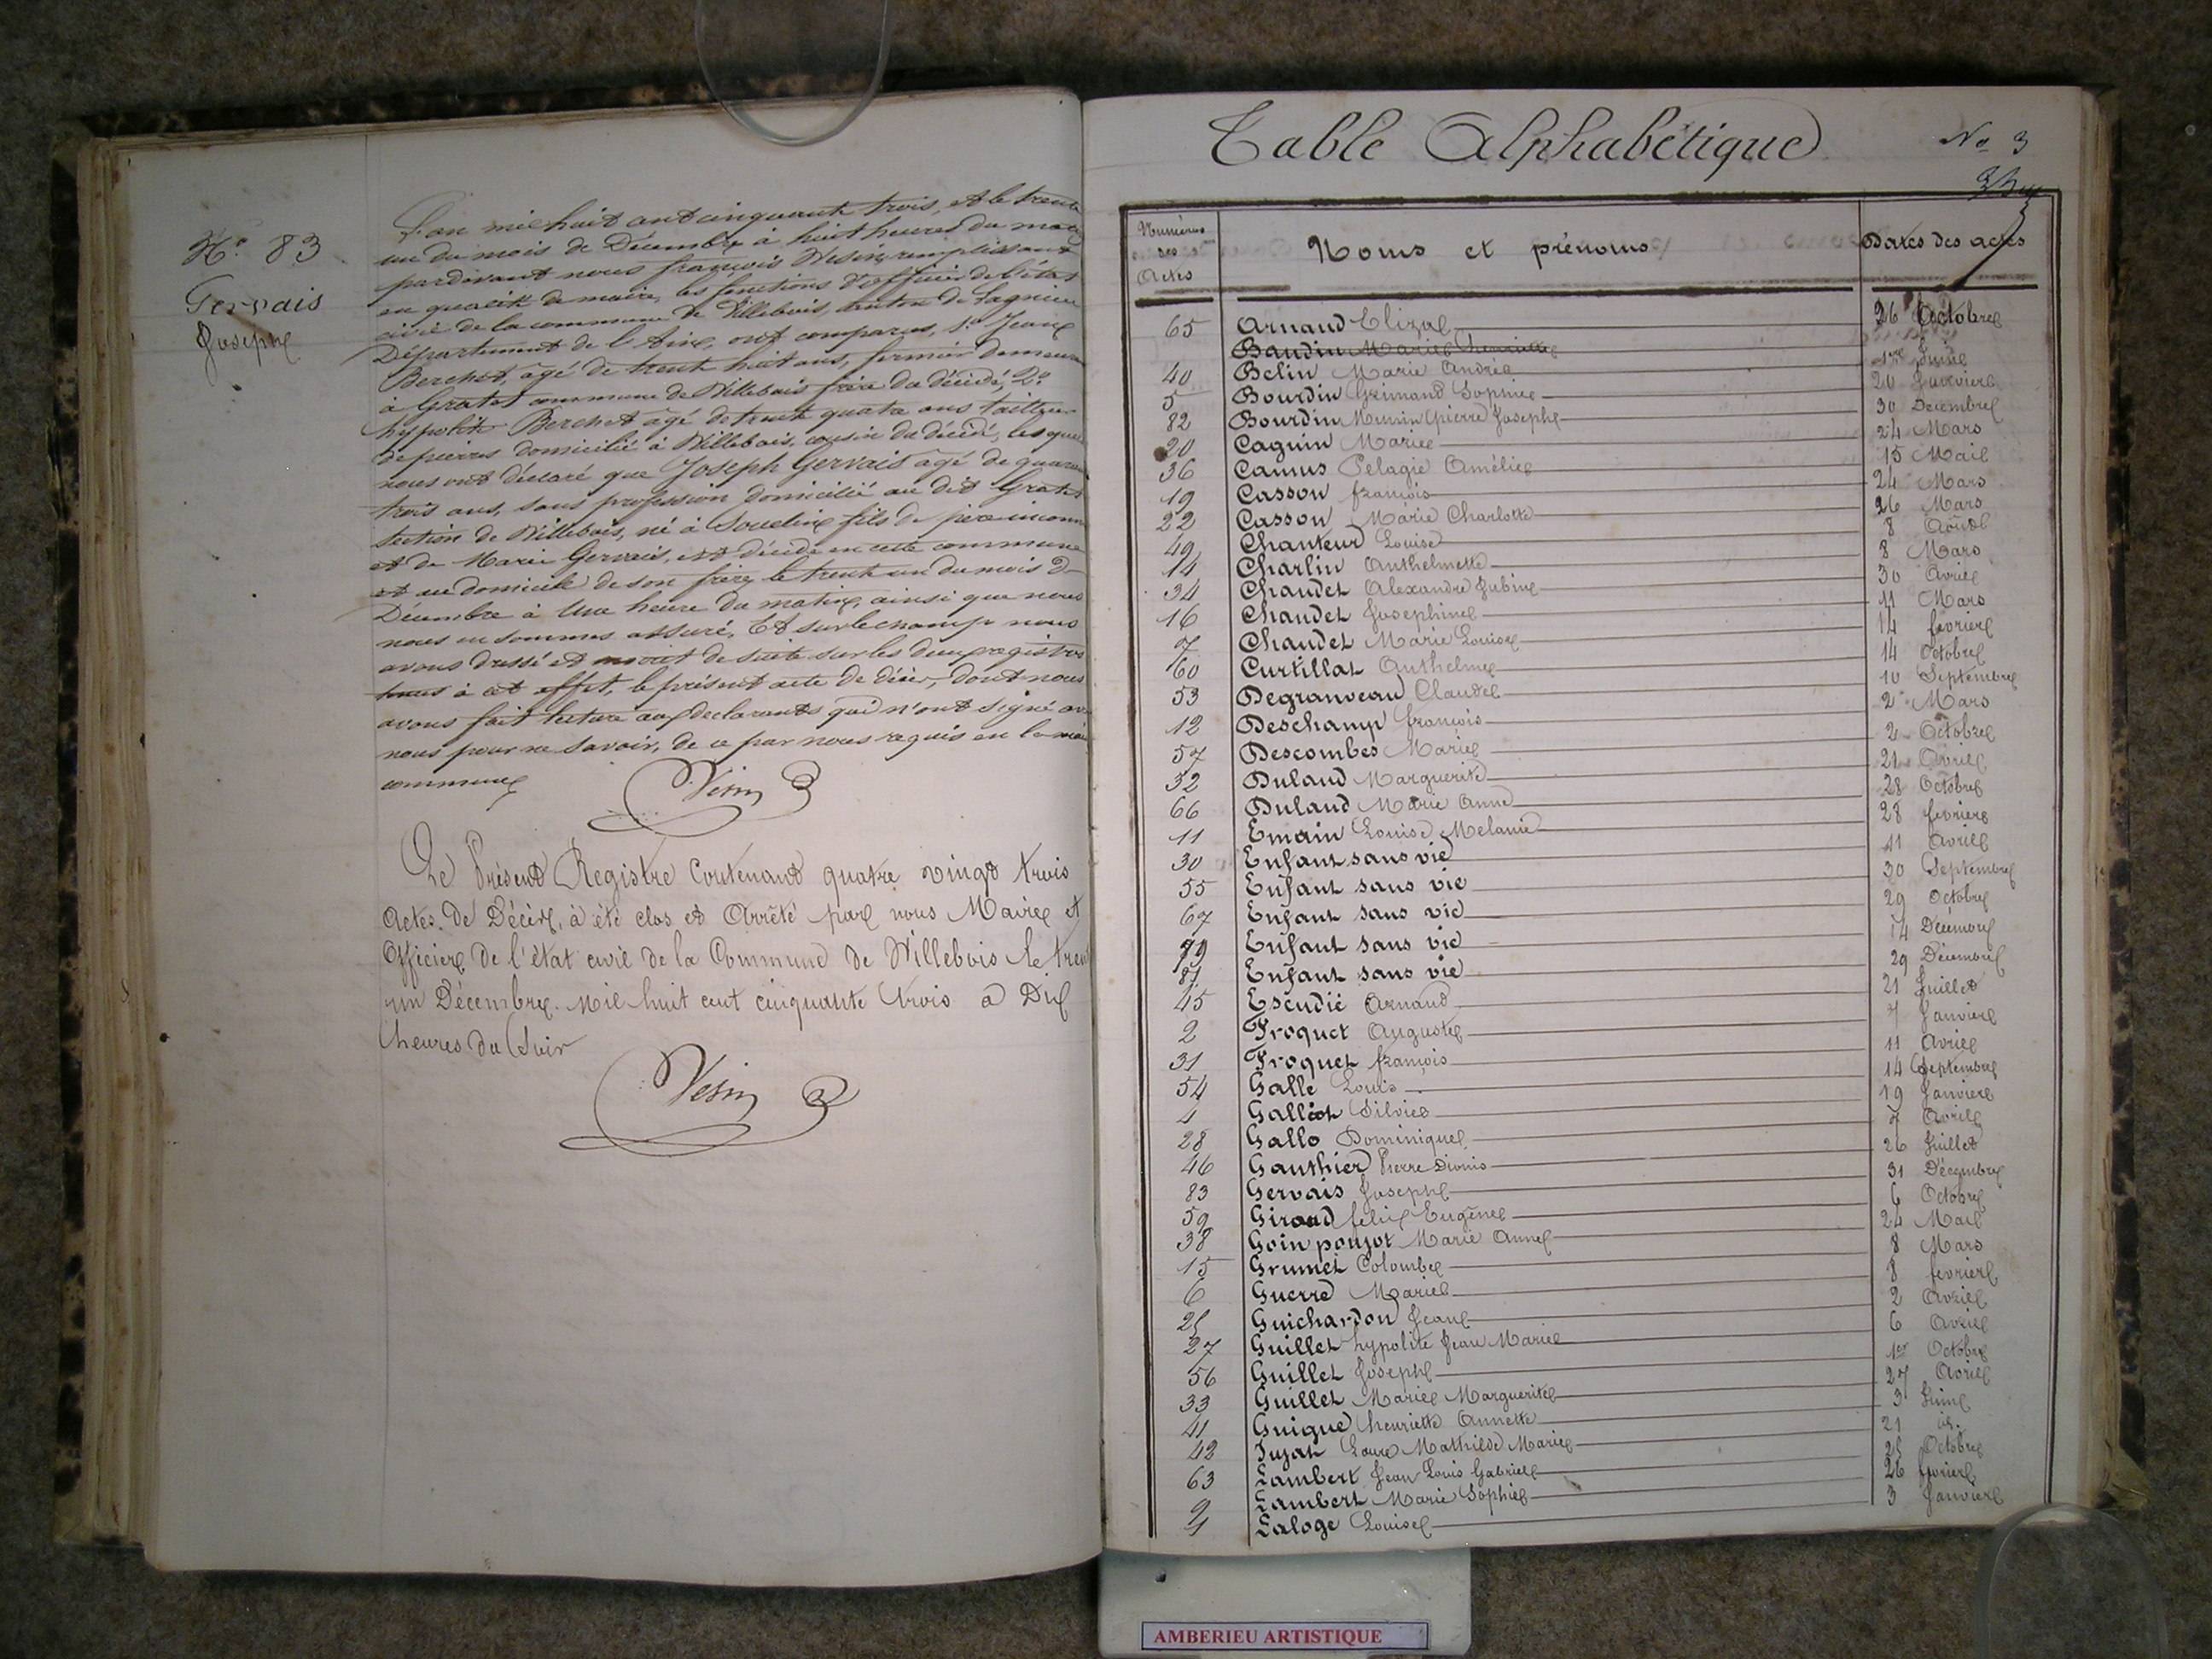 N.° 83
Gervais
Joseph
L'an mil huit cent cinquante trois, et le trente
un du mois de Décembre à huit heures du matin
pardevant nous françois Vesin, remplissant
en qualité de maire, les fonctions d'officier de l'état
civil de la commune de Villebois, canton de Lagnieu
Département de l'Ain, ont comparus, 1.° Jean
Berchet, âgé de trente huit ans, fermier demeurant
à Gratet commune de Villebois frère du décédé, 2.°
hypolite Berchet âgé de trente quatre ans tailleur
de pierres domicilié à Villebois, cousin du décédé, lesquels
nous ont déclaré que Joseph Gervais âgé de quarante
trois ans, sans profession domicilié au dit Gratet
section de Villebois, né à Souclin, fils de père inconnu
et de Marie Gervais, est décédé en cette commune
et au domicile de son frère, le trente un du mois de
Décembre à Une heure du matin, ainsi que nous
nous en sommes assuré, Et sur le champ nous
avons dressé et inscrit de suite sur les deux registres
tenus à cet effet, le présent acte de décès, dont nous
avons fait lecture aux declarants qui n'ont signé avec
nous pour ne savoir, de ce par nous requis en la même
commune
Vesin
Le Présent Registre Contenant quatre vingt trois
Actes de Décès, à été clos et Arrêté par nous Maire et
Officier de l'état civil de la Commune de Villebois le trente
un Décembre. Mil huit cent cinquante trois à Dix
heures du Soir
Vesin
Table Alphabétique
N.° 3
Numéros des Actes Noms et prénoms Dates des actes
65 Arnaud Eliza 26 Octobre
Baudin Marie henriette
40 Belin Marie Andréa 1er Juin
5 Bourdin Grimand Sophie 20 Janvier
82 Bourdin Mermin Pierre Joseph 30 Décembre
20 Caguin Marie 24 Mars
36 Camus Pelagie Amélie 15 Mai
19 Casson françois 24 Mars
22 Casson Marie Charlotte 26 Mars
49 Chanteur Louise 8 Août
14 Charlin Anthelmette 8 Mars
34 Chaudet Alexandre Jubin 30 Avril
16 Chaudet Josephine 11 Mars
7 Chaudet Marie Louise 14 février
60 Curtillat Anthelme 14 Octobre
53 Degranveau Claude 10 Septembre
12 Deschamp françois 2 Mars
57 Descombes Marie 2 Octobre
32 Duland Marguerite 21 Avril
66 Duland Marie Anne 28 Octobre
11 Emain Louise Melanie 28 février
30 Enfant sans vie 11 Avril
55 Enfant sans vie 30 Septembre
67 Enfant sans vie 29 Octobre
79 Enfant sans vie 14 Décembre
81 Enfant sans vie 29 Décembre
45 Escudié Arnaud 21 Juillet
2 Froquet Auguste 7 Janvier
31 Froquet françois 11 Avril
54 Galle Louis 14 Septembre
4 Galléot Silvie 19 Janvier
28 Gallo Dominique 7 Avril
46 Gauthier Pierre Dionis 26 Juillet
83 Gervais Joseph 31 Décembre
59 Giroud félix Eugène 6 Octobre
38 Goin poujot Marie Anne 24 Mai
15 Grumet Colombe 8 Mars
6 Guerre Marie 8 février
25 Guichardon Jean 2 Avril
27 Guillet hypolite Jean Marie 6 Avril
56 Guillet Joseph 1er Octobre
33 Guillet Marie Marguerite 27 Avril
41 Guigue henriette Annette 3 Juin
42 Jujat Laure Mathilde Marie 21 id.
63 Lambert Jean Louis Gabriel 25 Octobre
9 Lambert Marie Sophie 26 février
1 Laloge Louise 3 Janvier
AMBERIEU ARTISTIQUE